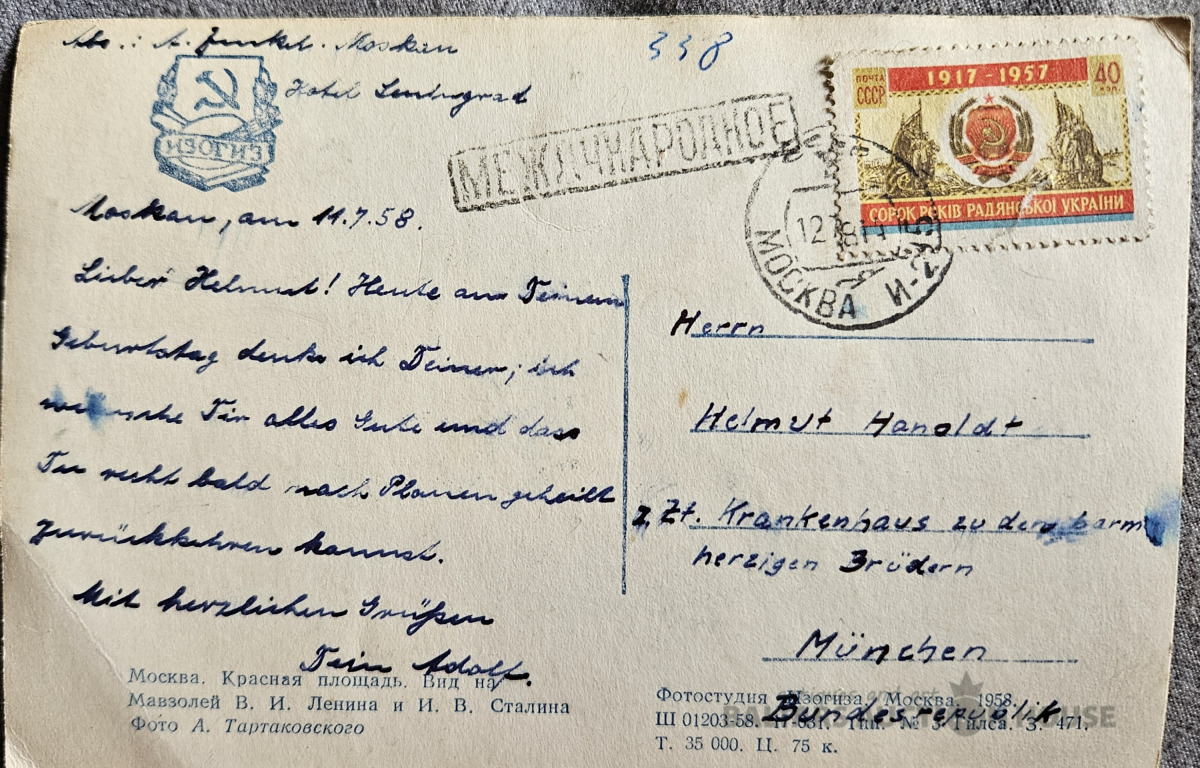 Abs.: A. Junkel. Moskau
Hotel Leningrad
338
ИЗОГИЗ
МЕЖДУНАРОДНОЕ
1917-1957
ПОЧТА СССР
40 коп.
СОРОК РОКІВ РАДЯНСЬКОЇ УКРАЇНИ
МОСКВА И-2
Moskau, am 11.7.58.
Lieber Helmut! Heute an Deinem
Geburtstag denke ich Deiner; ich
wünsche Dir alles Gute und dass
Du recht bald nach Plauen geheilt
zurückkehren kannst.
Mit herzlichen Grüßen
Dein Adolf.
Herrn
Helmut Hanoldt
z. Zt. Krankenhaus zu den barm
herzigen Brüdern
München
Bundesrepublik
Москва. Красная площадь. Вид на
Мавзолей В. И. Ленина и И. В. Сталина
Фото А. Тартаковского
Фотостудия Изогиза. Москва. 1958.
Ш 01203-58. Тип. № 3 Гилса. З. 471.
Т. 35 000. Ц. 75 к.